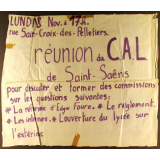 LUNDI 8 Nov. à 17h.
rue Saint-Croix-des-Pelletiers.
réunion du CAL
de Saint-Saëns
pour discuter et former des commissions
sur les questions suivantes:
* La réforme d'Edgar Faure, * Le règlement.
* Les internes. * L'ouverture du lycée sur
l'extérieur